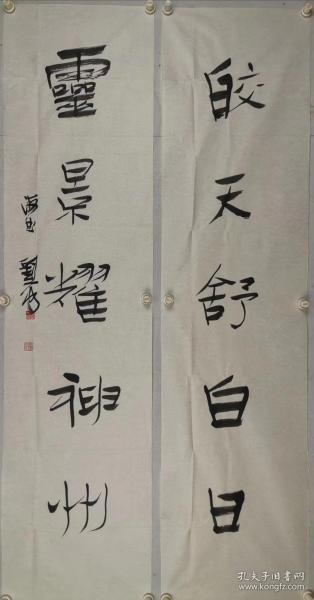 皎天舒白日
靈景耀神州
孔夫子旧书网